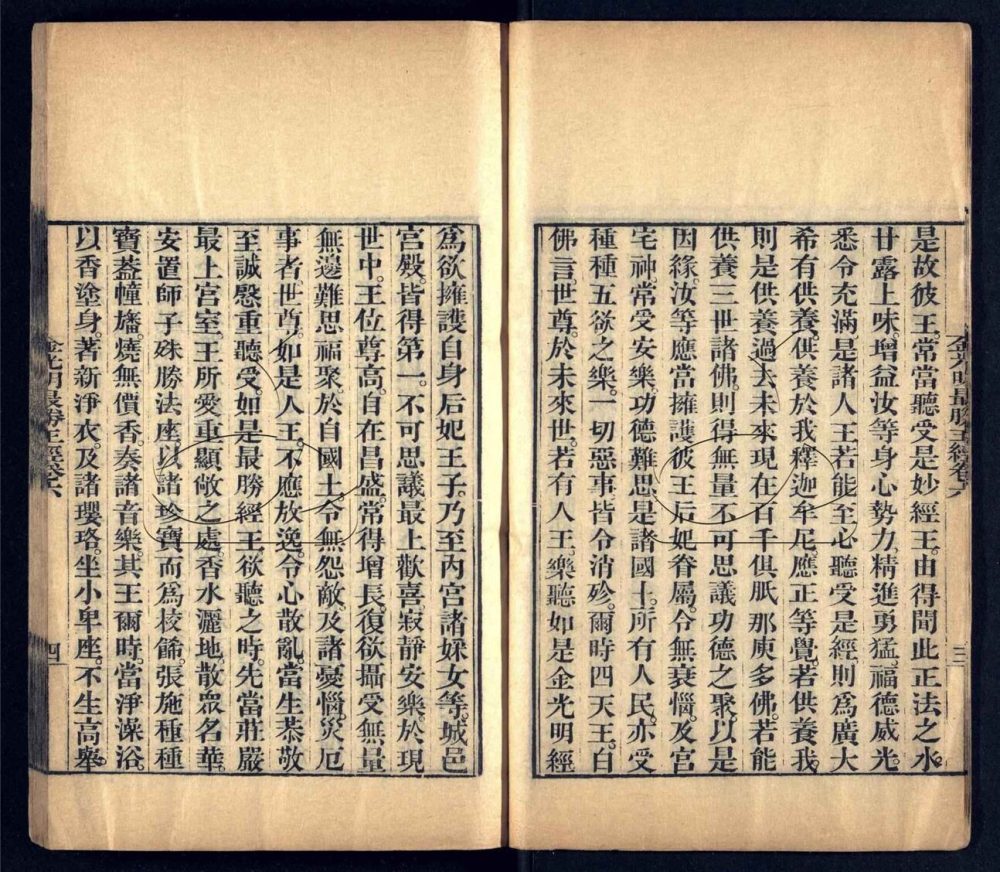 金光明最勝王經卷六
三
是故彼王。常當聽受是妙經王。由得聞此正法之水。
甘露上味。增益汝等身心勢力。精進勇猛。福德威光。
悉令充滿。是諸人王。若能至心聽受是經。則爲廣大
希有供養。供養於我釋迦牟尼。應正等覺。若供養我。
則是供養。過去未來現在百千俱胝那庾多佛。若能
供養三世諸佛。則得無量不可思議功德之聚。以是
因緣。汝等應當擁護彼王后妃眷屬。令無衰惱。及宮
宅神。常受安樂。功德難思。是諸國土。所有人民。亦受
種種五欲之樂。一切惡事。皆令消殄。爾時四天王。白
佛言。世尊。於未來世。若有人王。樂聽如是金光明經
爲欲擁護自身后妃王子。乃至內宮諸婇女等。城邑
宮殿。皆得第一。不可思議最上歡喜。寂靜安樂。於現
世中。王位尊高。自在昌盛。常得增長。復欲攝受無量
無邊難思福聚。於自國土。令無怨敵。及諸憂惱。災厄
事者。世尊。如是人王。不應放逸。令心散亂。當生恭敬
至誠慇重聽受。如是最勝經王。欲聽之時。先當莊嚴
最上宮室。王所愛重顯敞之處。香水灑地。散眾名華。
安置師子殊勝法座。以諸珍寶而爲校飾。張施種種
寶蓋幢旛。燒無價香。奏諸音樂。其王爾時。當淨澡浴。
以香塗身。著新淨衣。及諸瓔珞。坐小卑座。不生高舉。
金光明最勝王經卷六
四